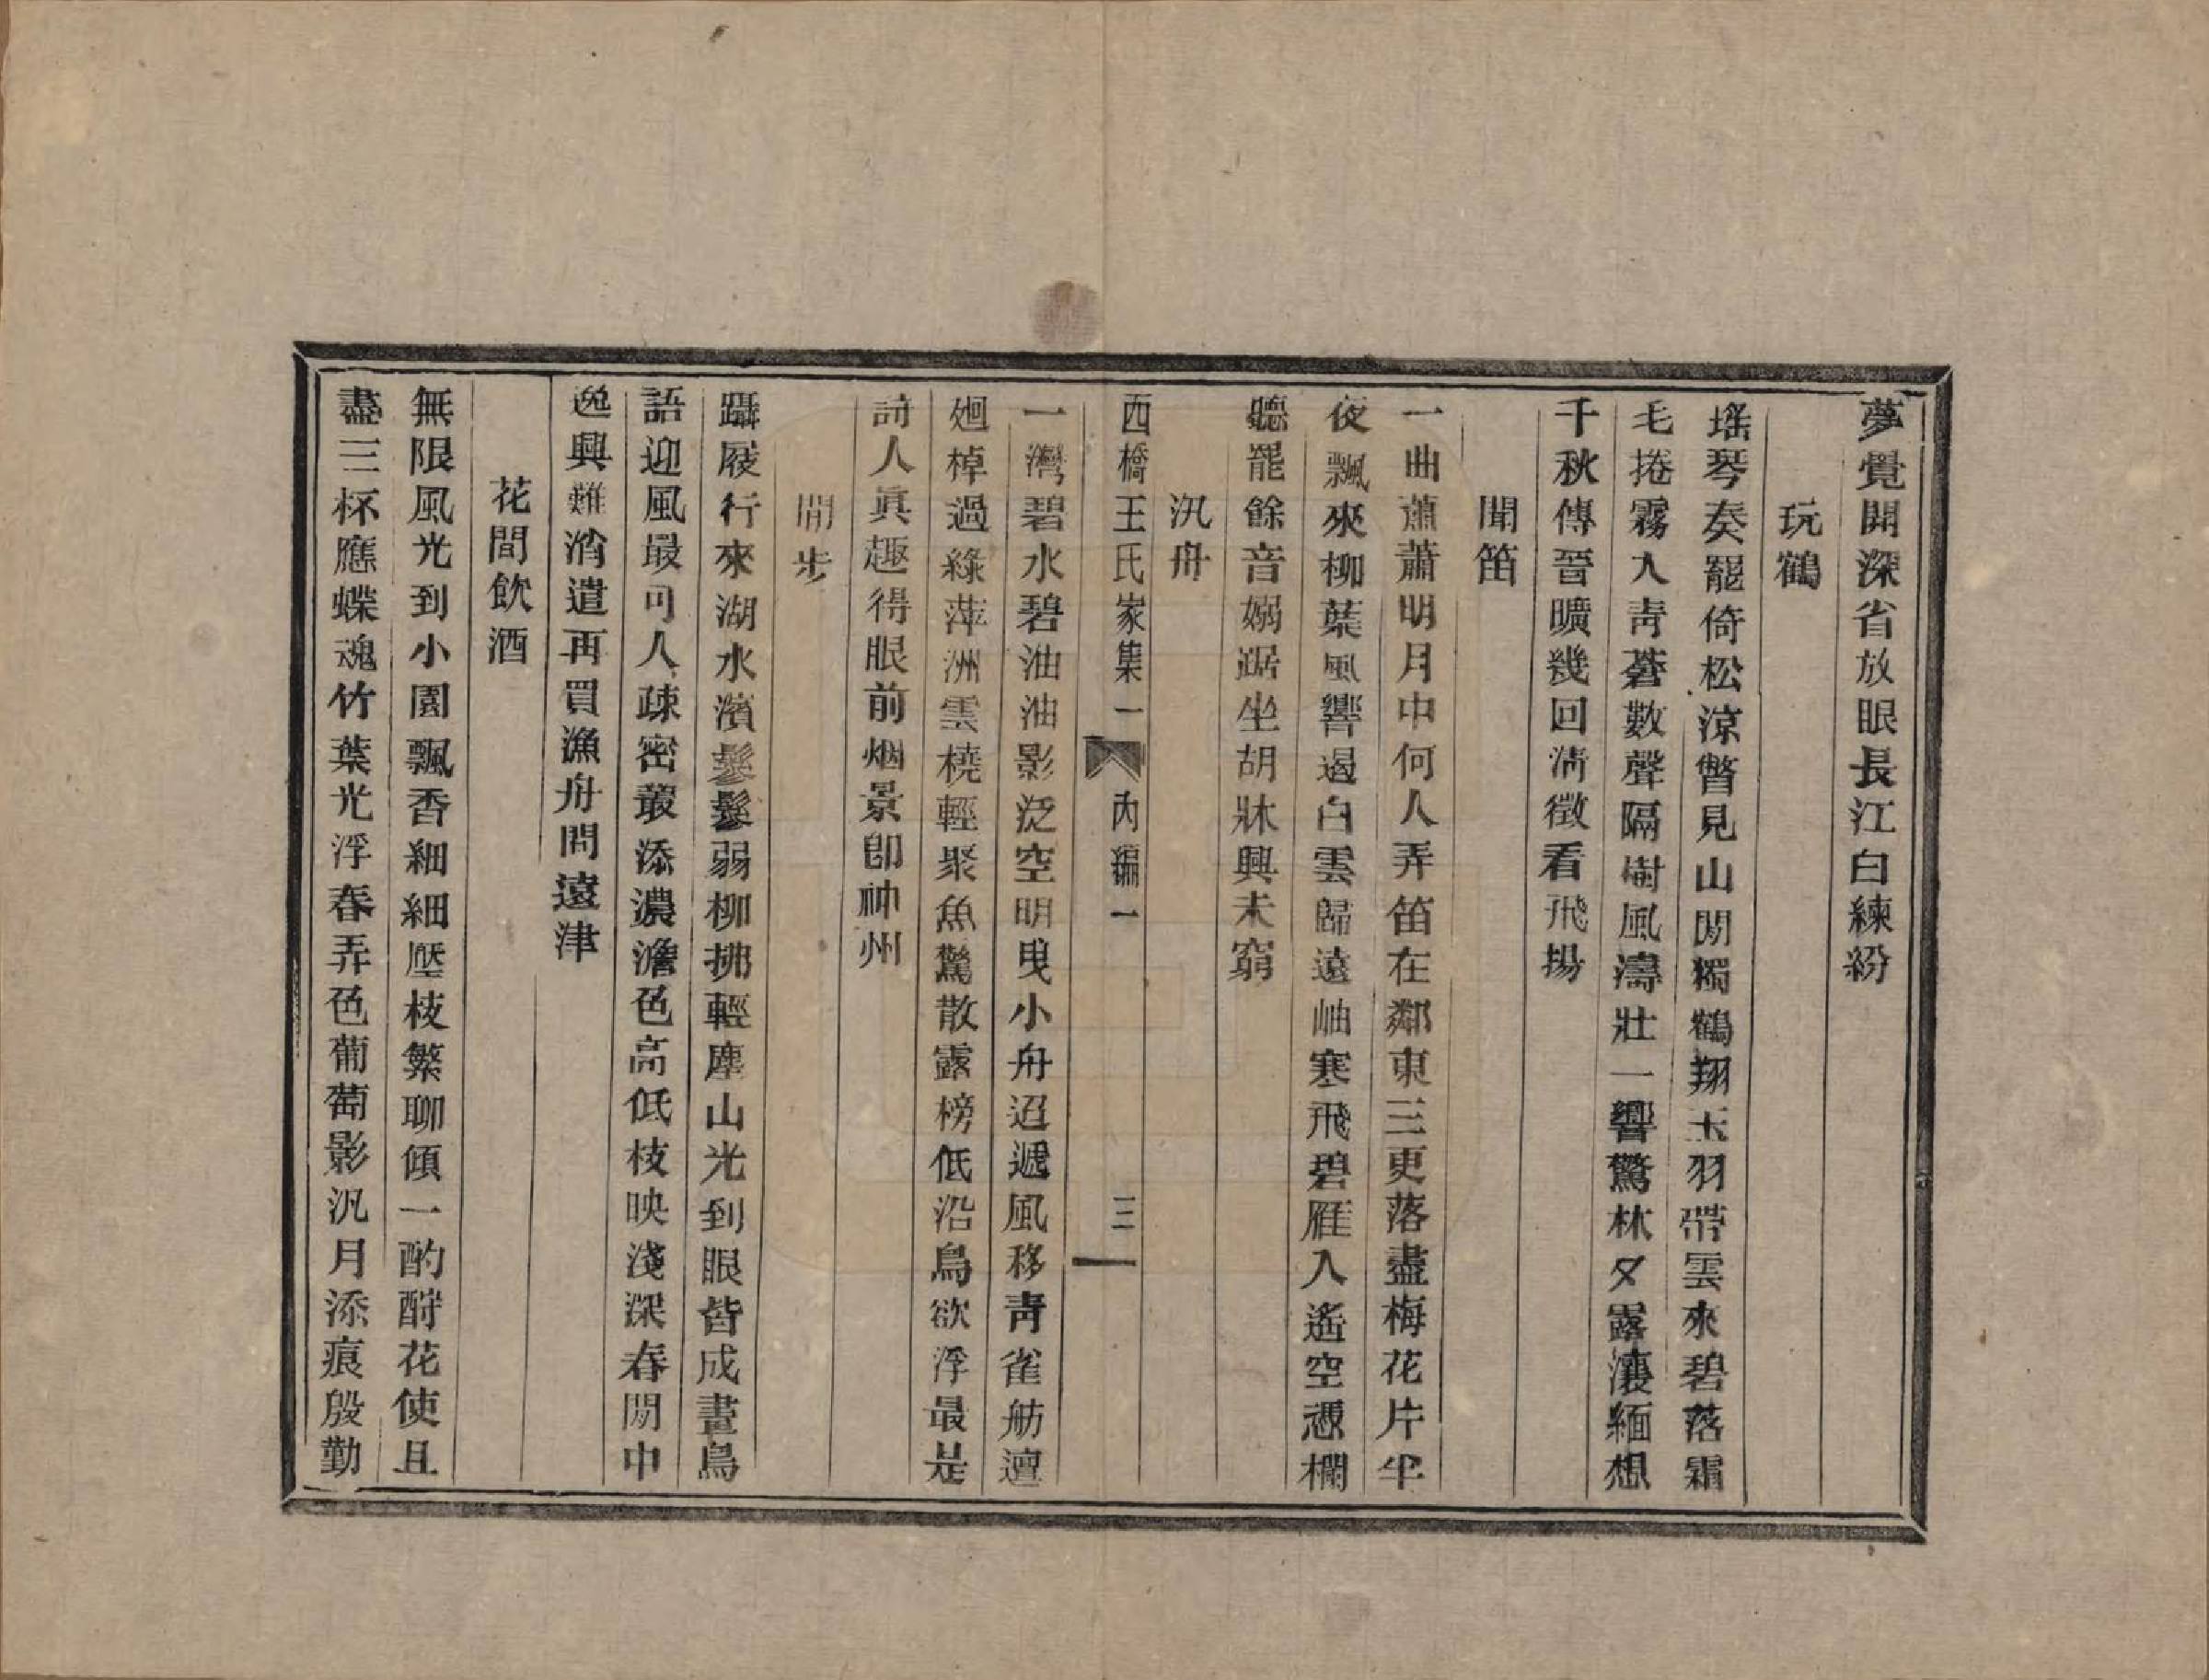 夢覺開深省放眼長江白練紛
玩鶴
瑤琴奏罷倚松涼瞥見山閒獨鶴翔玉羽帶雲來碧落霜
毛捲霧入青蒼數聲隔樹風濤壯一響驚林夕露瀼緬想
千秋傳晉曠幾回清徵看飛揚
聞笛
一曲蕭蕭明月中何人弄笛在鄰東三更落盡梅花片半
夜飄來柳葉風響遏白雲歸遠岫寒飛碧雁入遙空憑欄
聽罷餘音嫋踞坐胡牀興未窮
汎舟
西橋王氏家集一 內編一 三
一灣碧水碧油油影泛空明曳小舟迢遞風移青雀舫邅
廻棹過綠萍洲雲橈輕聚魚驚散露榜低沿鳥欲浮最是
詩人眞趣得眼前烟景卽神州
閒步
躡屐行來湖水濱鬖鬖弱柳拂輕塵山光到眼皆成畫鳥
語迎風最可人疎密叢添濃澹色高低枝映淺深春閒中
逸興難消遣再買漁舟問遠津
花間飲酒
無限風光到小園飄香細細壓枝繁聊傾一酌酧花使且
盡三杯應蝶魂竹葉光浮春弄色葡萄影汎月添痕殷勤